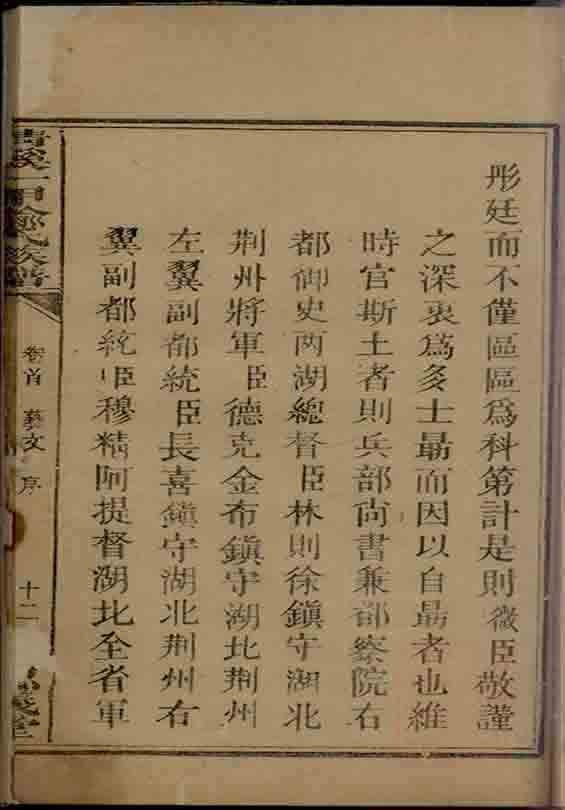 彤廷而不僅區區爲科第計是則微臣敬謹
之深衷爲多士勗而因以自勗者也維
時官斯土者則兵部尙書兼都察院右
都御史两湖總督臣林則徐鎮守湖北
荆州將軍臣德克金布鎮守湖北荆州
左翼副都統臣長喜鎮守湖北荆州右
翼副都統臣穆精阿提督湖北全省軍
氏族譜
卷首 藝文 序
十二
堂